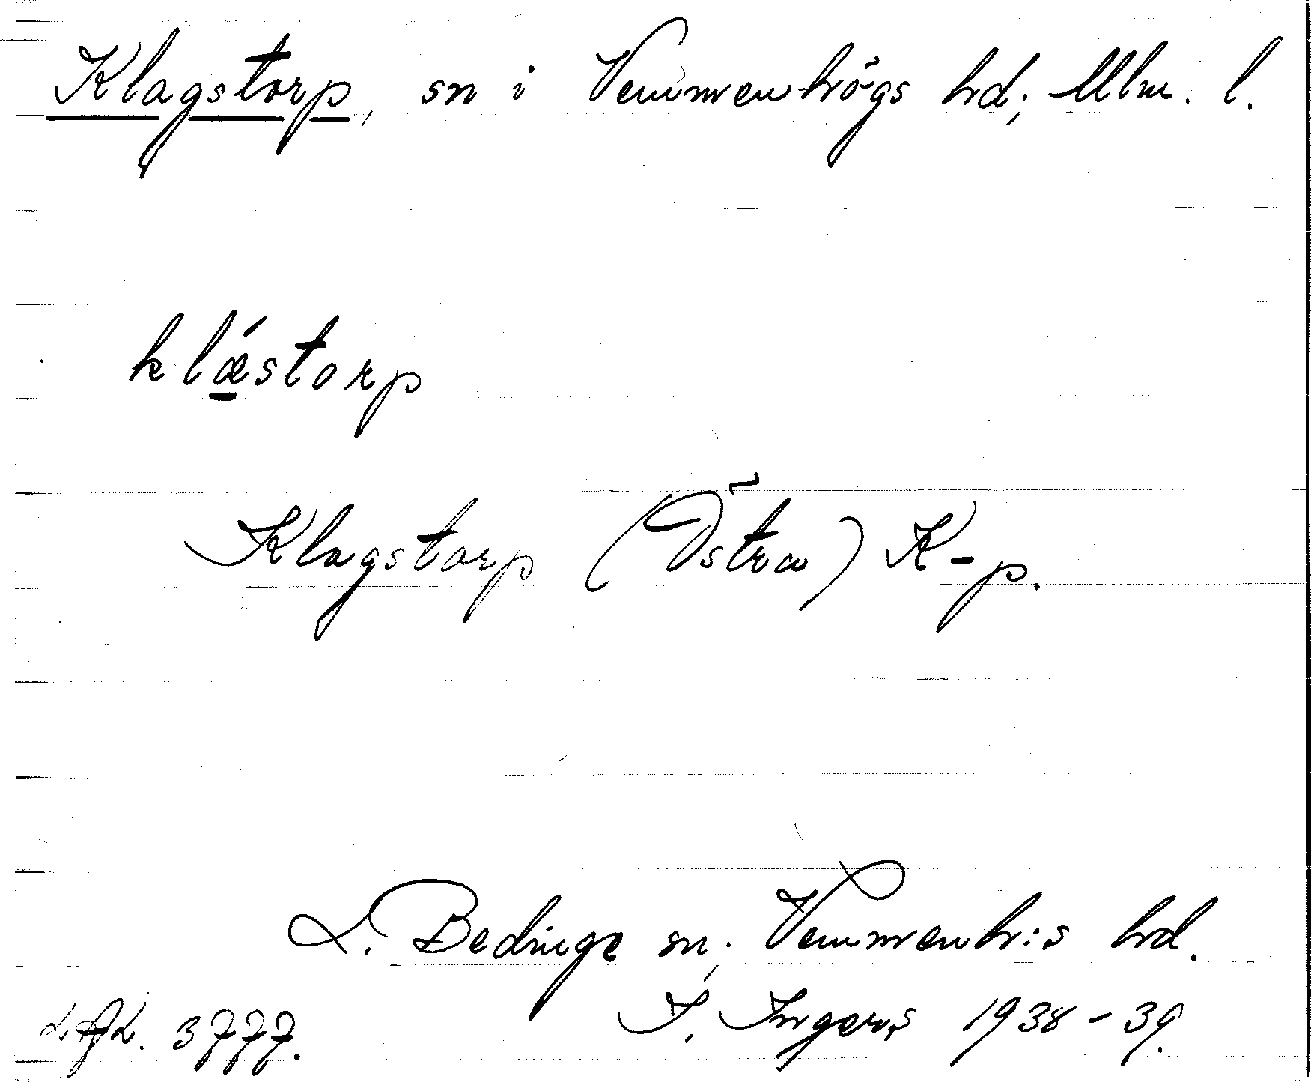 Klagstorp, sn i Vemmenhögs hd, Mlm. l.
klǽstorp
Klagstorp (Östra) K-p.
L. Bedinge sn, Vemmenh:s hd.
I. Ingers 1938-39.
3777.